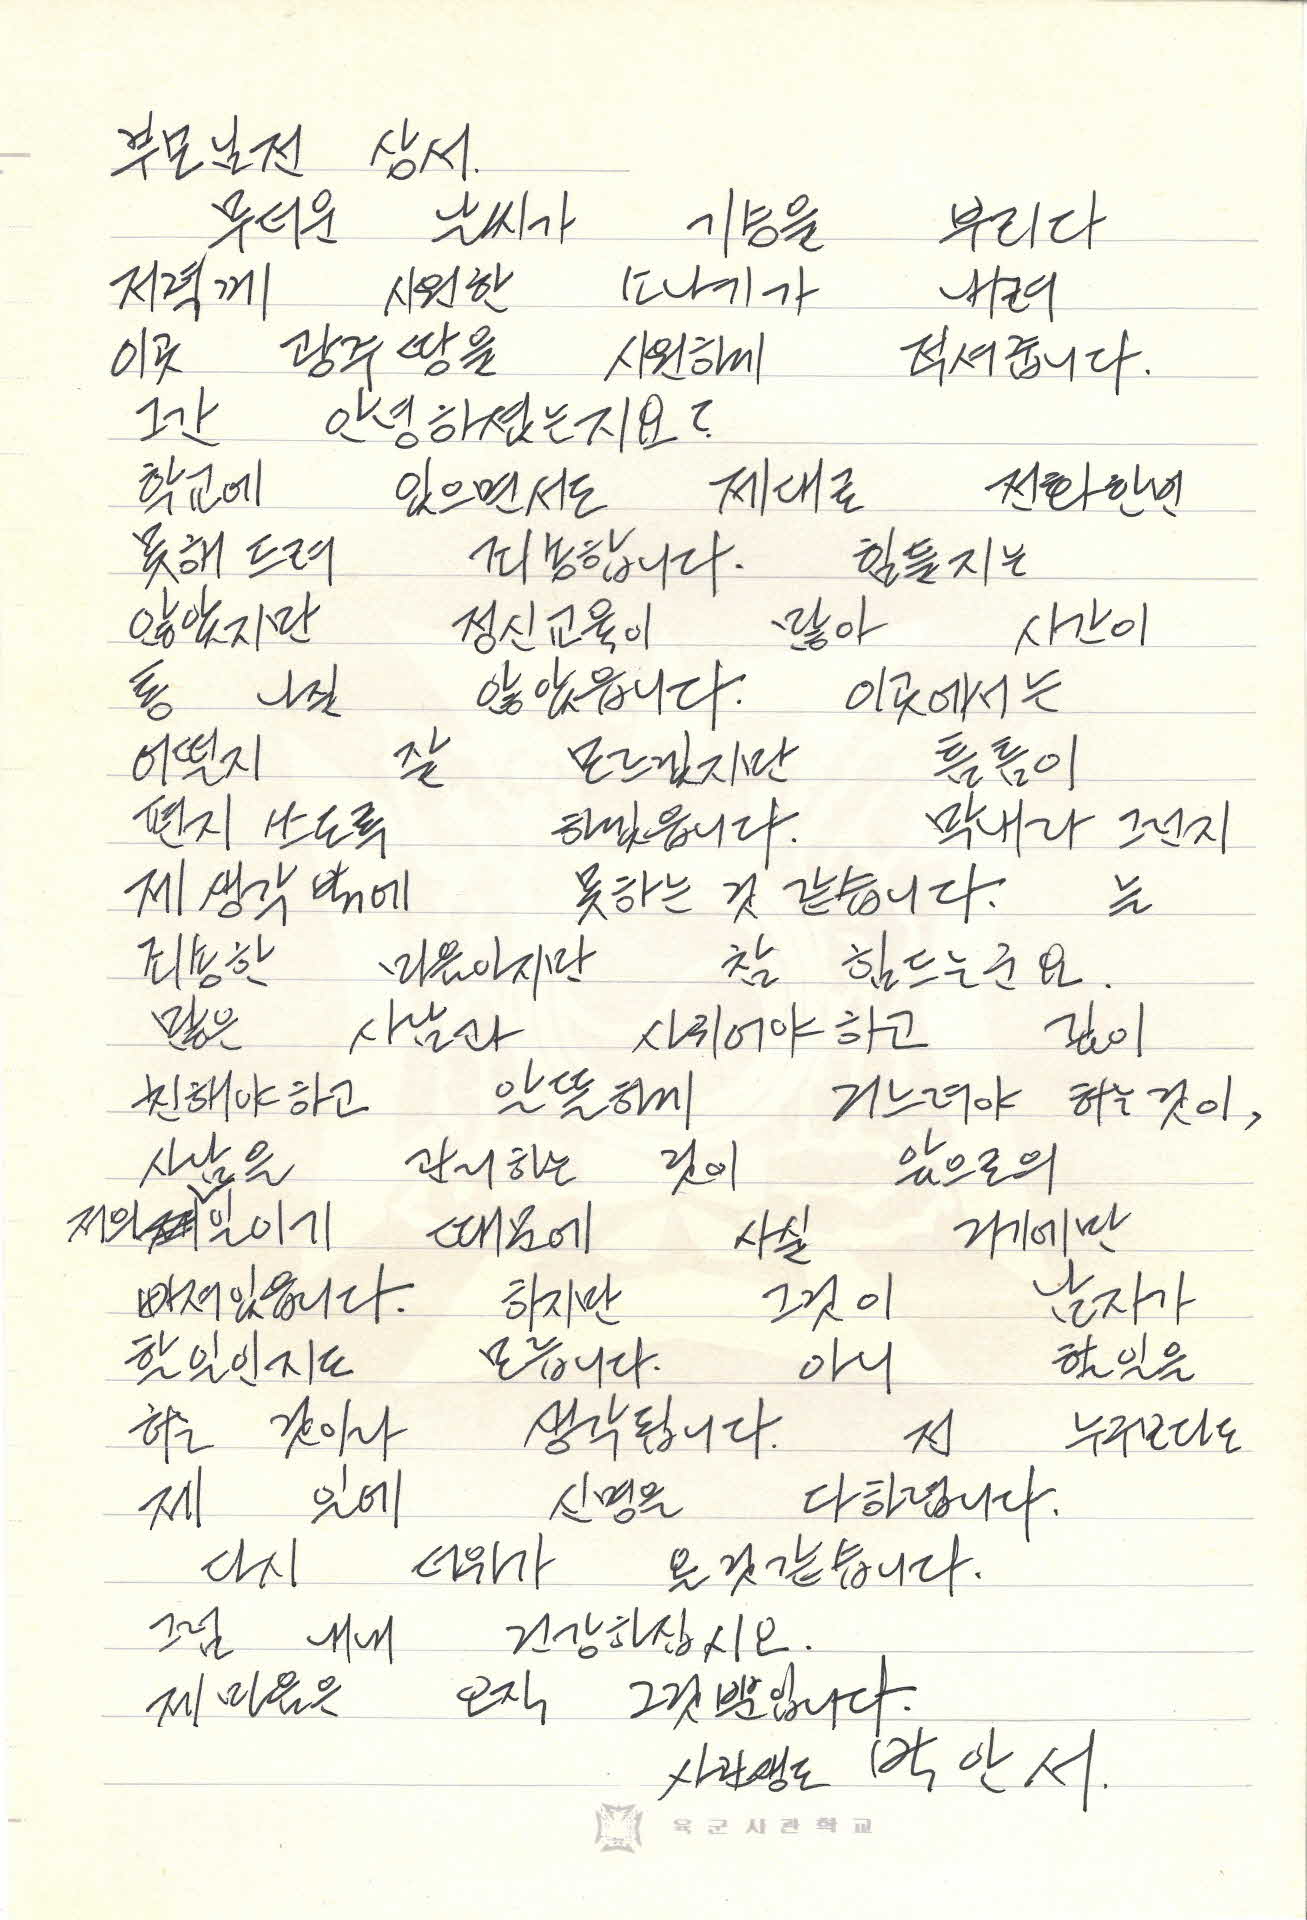 부모님전 상서.
무더운 날씨가 기승을 부리다
저녁께 시원한 소나기가 내려
이곳 광주땅을 시원하게 적셔줍니다.
그간 안녕하셨는지요?
학교에 있으면서도 제대로 전화한번
못해드려 죄송합니다. 힘들지는
않았지만 정신교육이 많아 시간이
통 나질 않았읍니다. 이곳에서는
어떨지 잘 모르겠지만 틈틈이
편지 쓰도록 하겠읍니다. 막내라 그런지
제 생각밖에 못하는 것 같습니다. 늘
죄송한 마음이지만 참 힘드는군요.
많은 사람과 사귀어야하고 깊이
친해야하고 알뜰하게 거느려야 하는것이,
사람을 관리하는 것이 앞으로의
저의 일이기 때문에 사실 거기에만
빠져있읍니다. 하지만 그것이 남자가
할일인지도 모릅니다. 아니 할일을
하는 것이라 생각됩니다. 전 누구보다도
제 일에 신명을 다하렵니다.
다시 더위가 온것같습니다.
그럼 내내 건강하십시오.
제 마음은 오직 그것뿐입니다.
사관생도 박안서.
육군사관학교